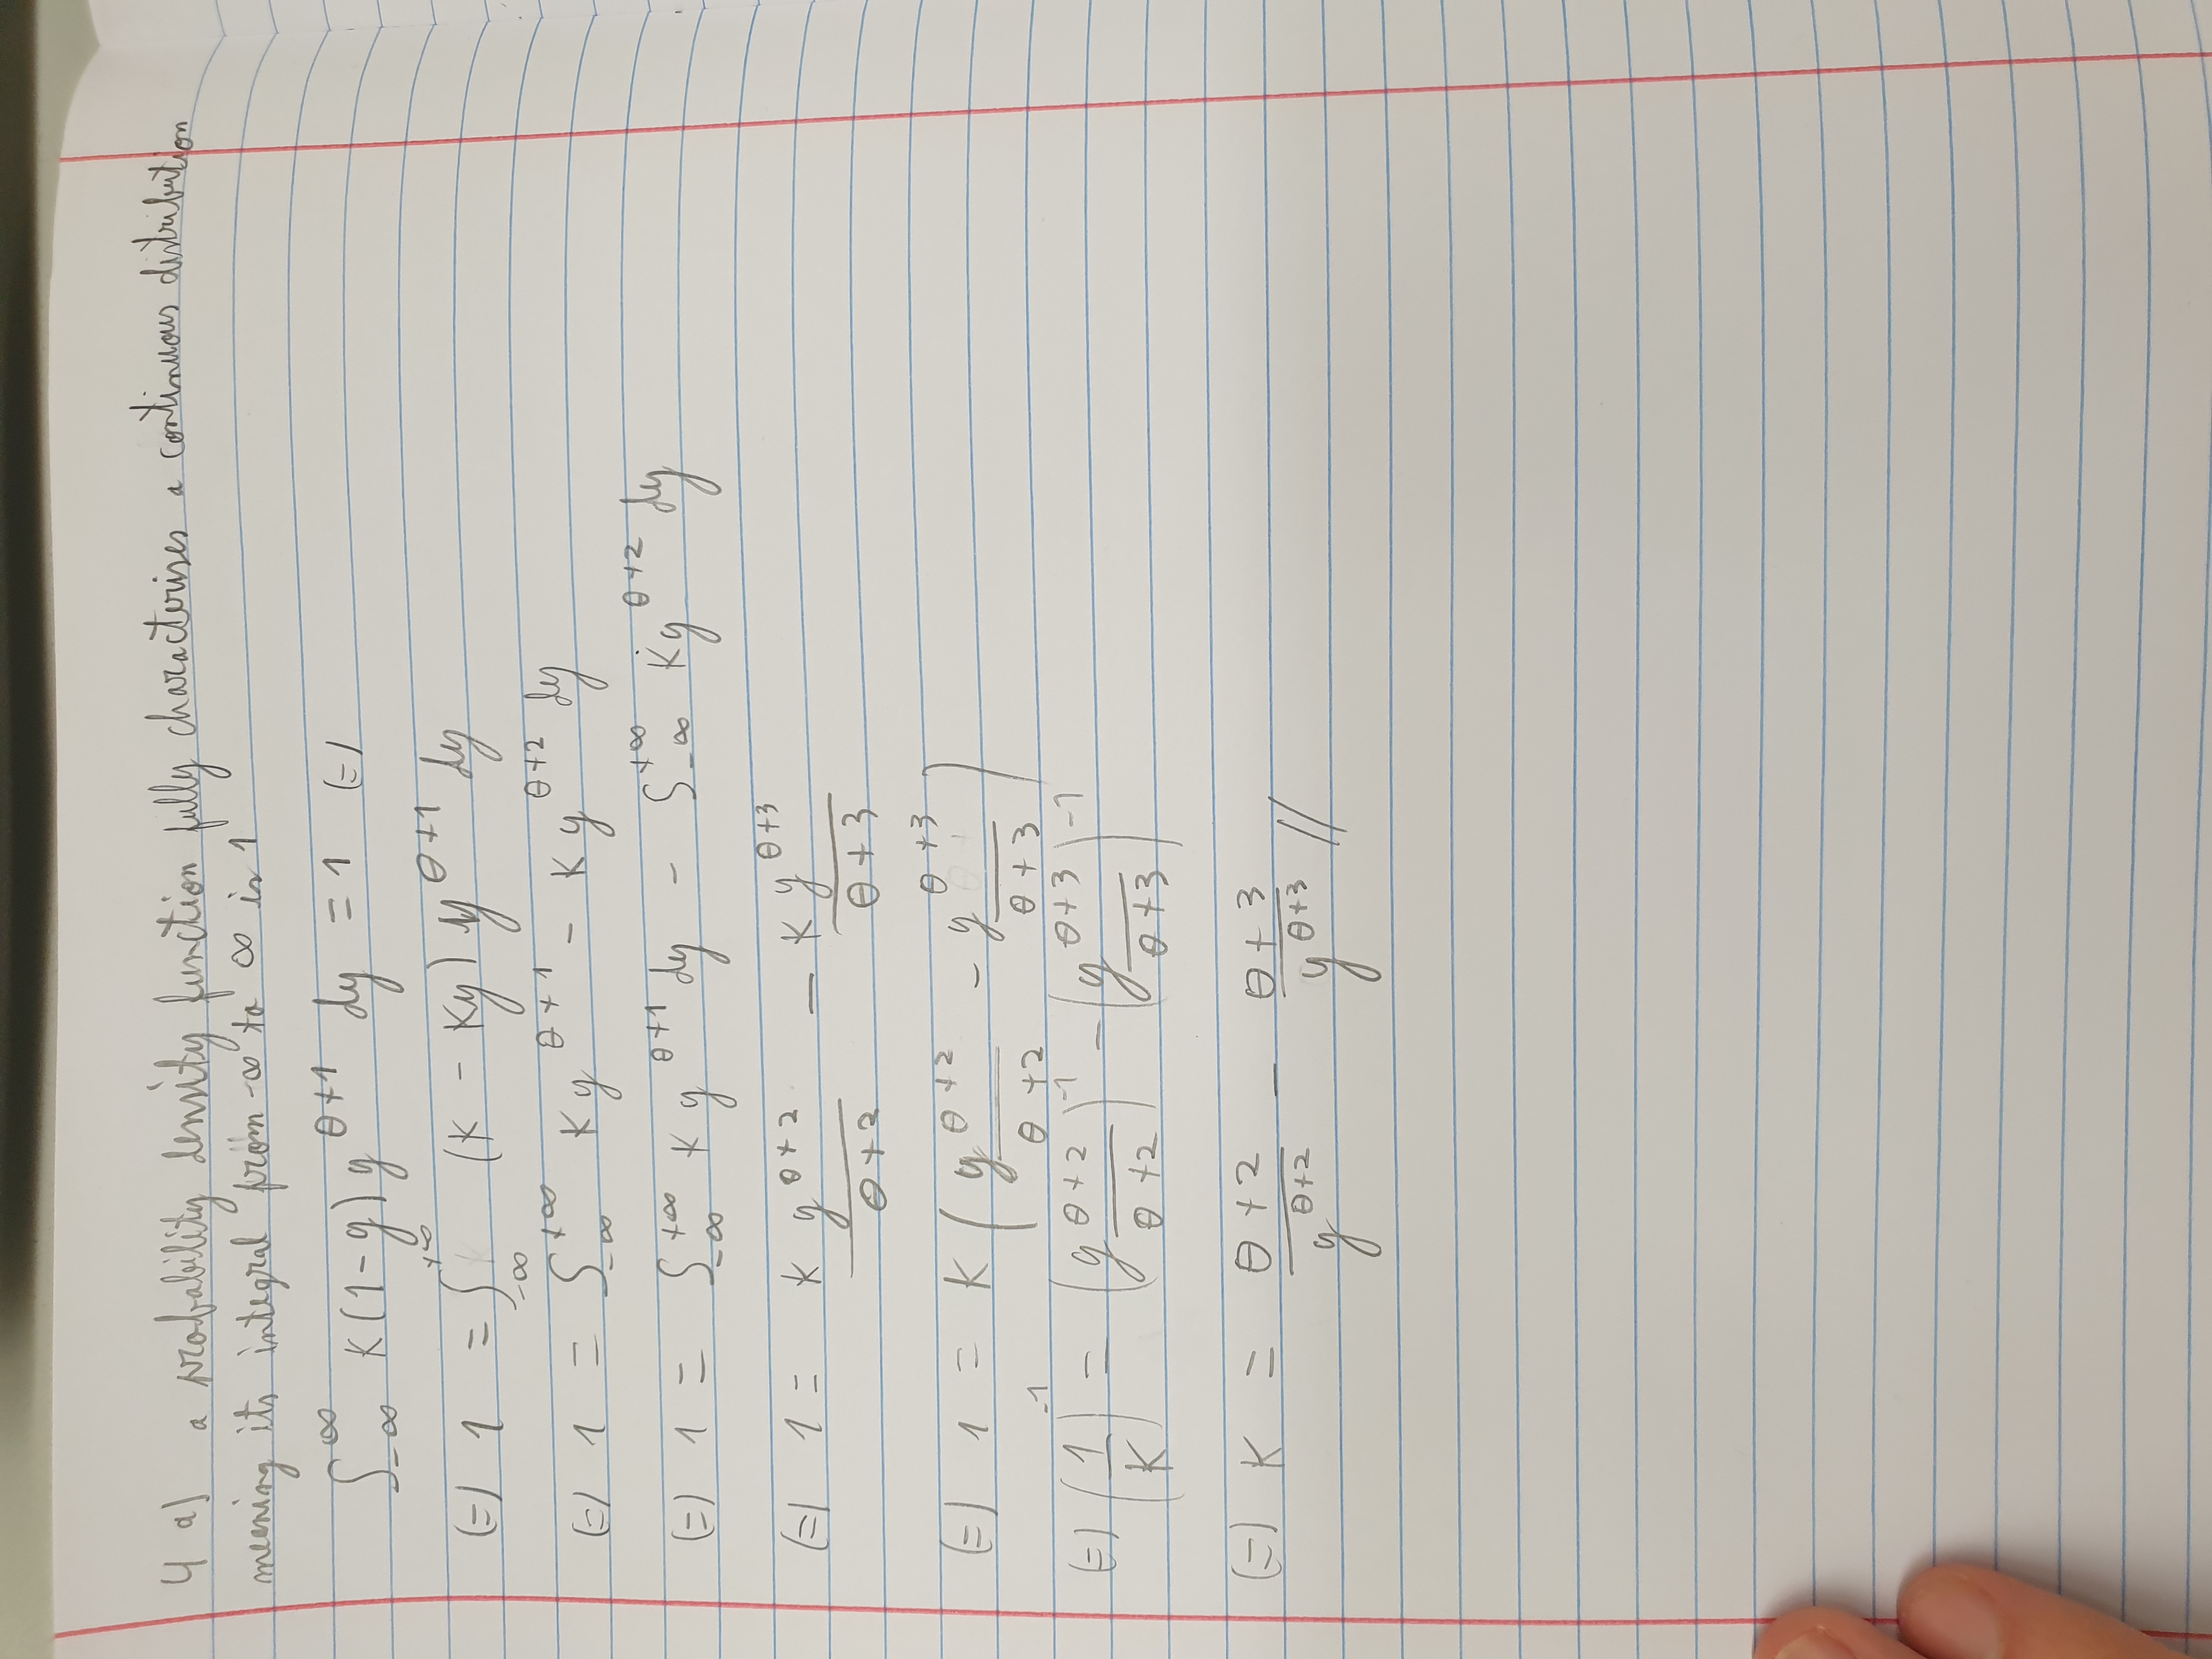 4 a) a probability density function fully characterises a continuous distribution
meaning its integral from -∞ to ∞ is 1
∫_{-∞}^{∞} K(1-y) y^{θ+1} dy = 1 (=)
(=) 1 = ∫_{-∞}^{+∞} (K - Ky) y^{θ+1} dy
(=) 1 = ∫_{-∞}^{+∞} K y^{θ+1} - K y^{θ+2} dy
(=) 1 = ∫_{-∞}^{+∞} K y^{θ+1} dy - ∫_{-∞}^{+∞} K y^{θ+2} dy
(=) 1 = \frac{K y^{θ+2}}{θ+2} - \frac{K y^{θ+3}}{θ+3}
(=) 1 = K ( \frac{y^{θ+2}}{θ+2} - \frac{y^{θ+3}}{θ+3} )
(=) (\frac{1}{K})^{-1} = (\frac{y^{θ+2}}{θ+2})^{-1} - (\frac{y^{θ+3}}{θ+3})^{-1}
(=) K = \frac{θ+2}{y^{θ+2}} - \frac{θ+3}{y^{θ+3}} //